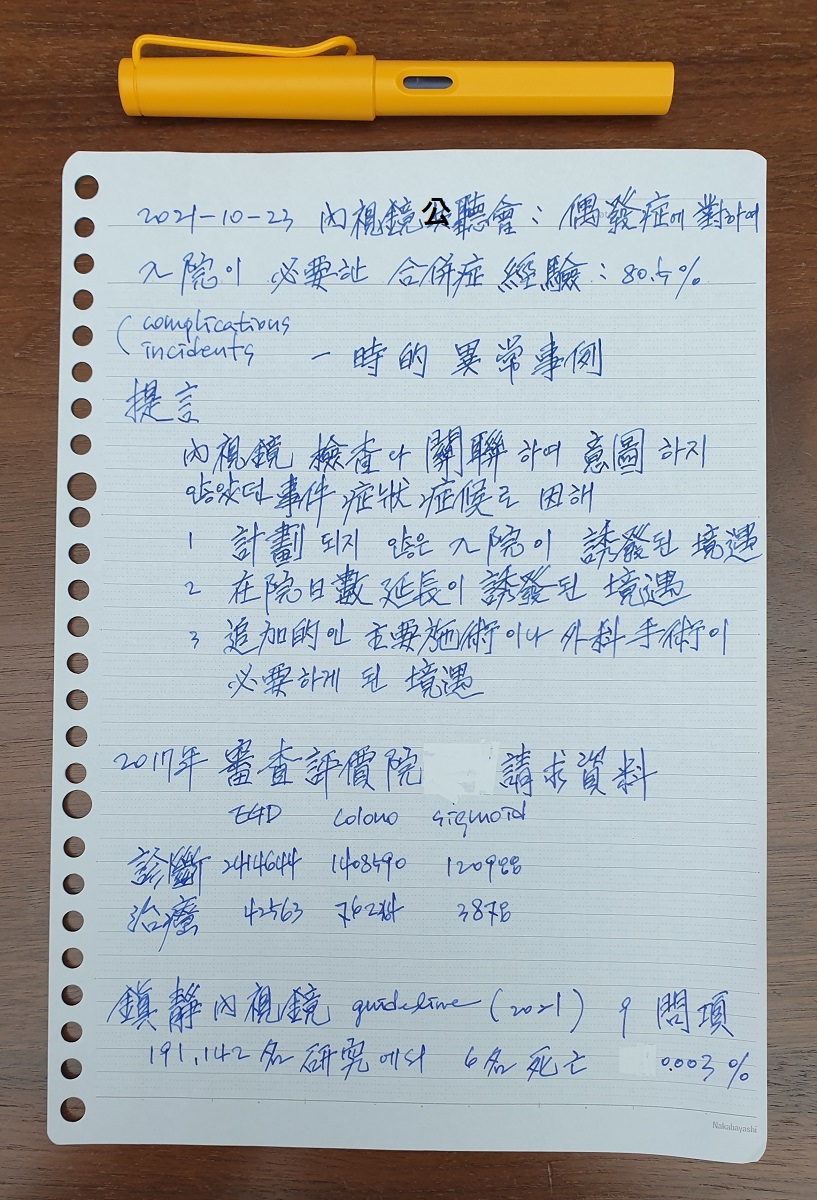 2021-10-23 內視鏡 公聽會 : 偶發症에 對하여
入院이 必要한 合併症 經驗 : 80.5%
( complications
incidents 一時的 異常事例
提言
內視鏡 檢查나 關聯하여 意圖하지
않았던 事件, 症狀, 症候로 因해
1 計劃되지 않은 入院이 誘發된 境遇
2 在院日數 延長이 誘發된 境遇
3 追加的인 主要施術이나 外科手術이
必要하게 된 境遇
2017年 審査評價院 請求資料
EGD colono sigmoid
診斷 2414644 1408590
治療 42563 3878
鎭靜內視鏡 guideline (2021) 9 問項
191,142名 研究에서 6名 死亡 0.003%
Nakabayashi